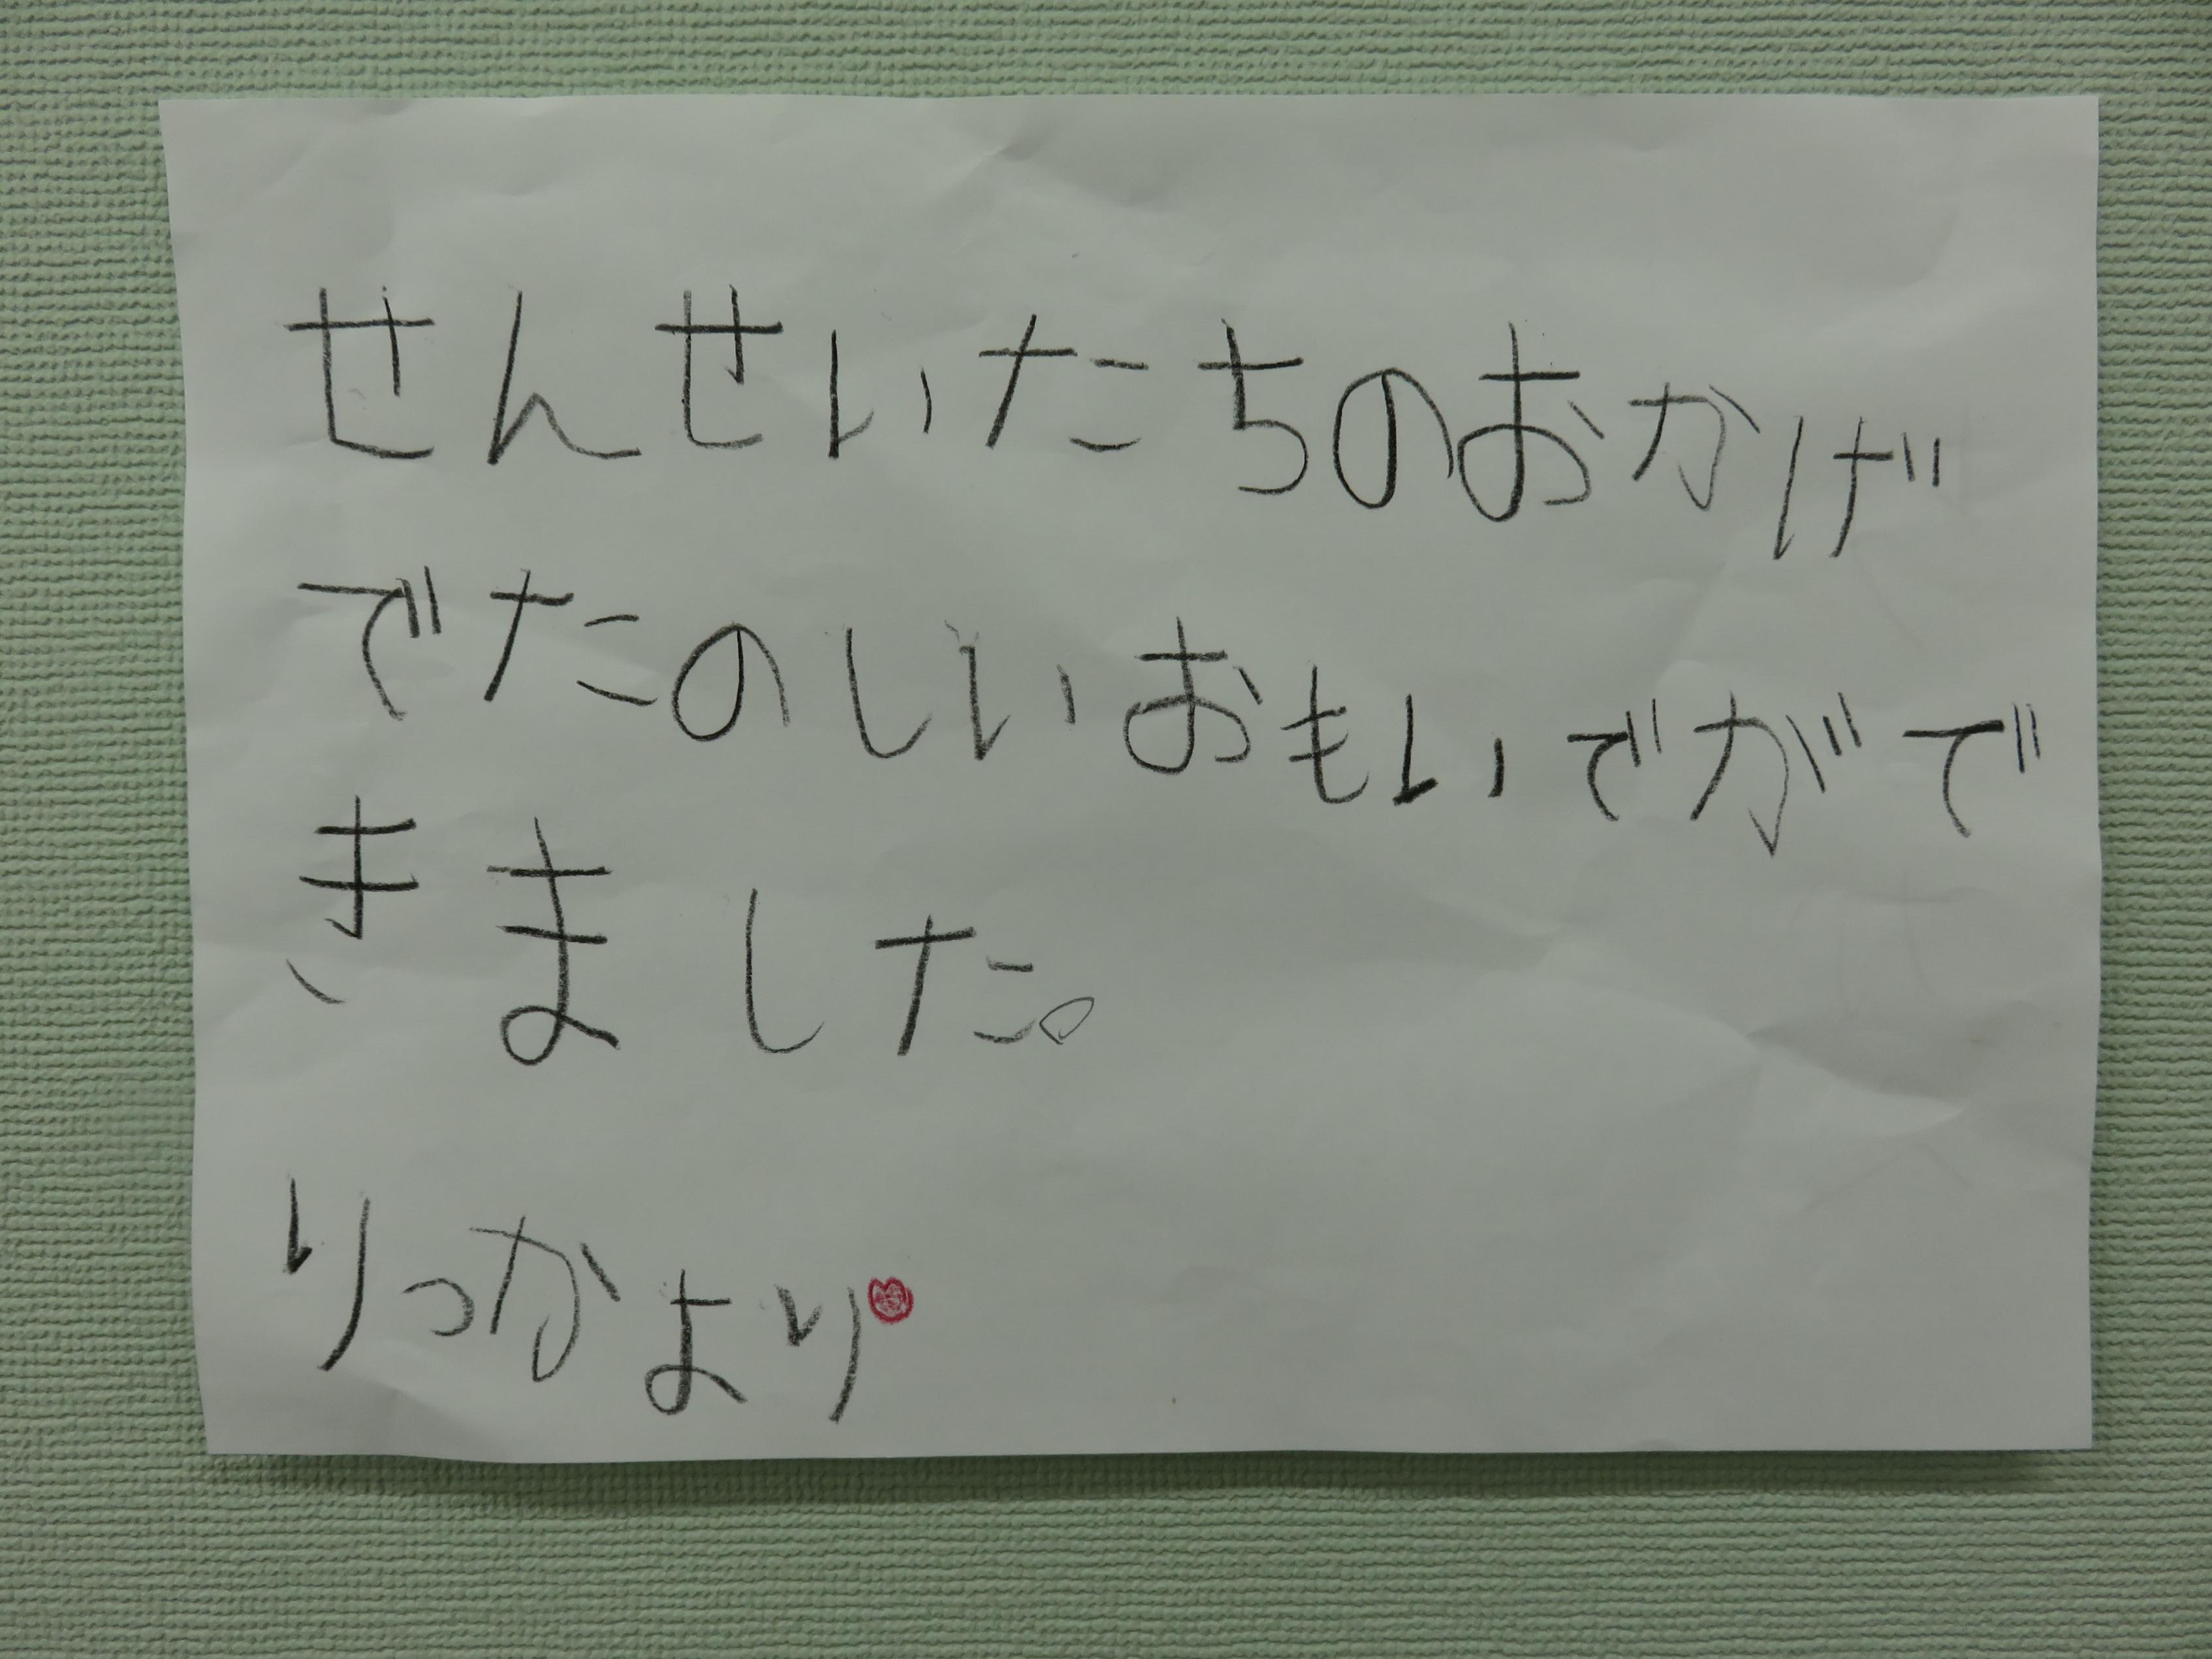 せんせいたちのおかげ
でたのしいおもいでがで
きました。
りっかより